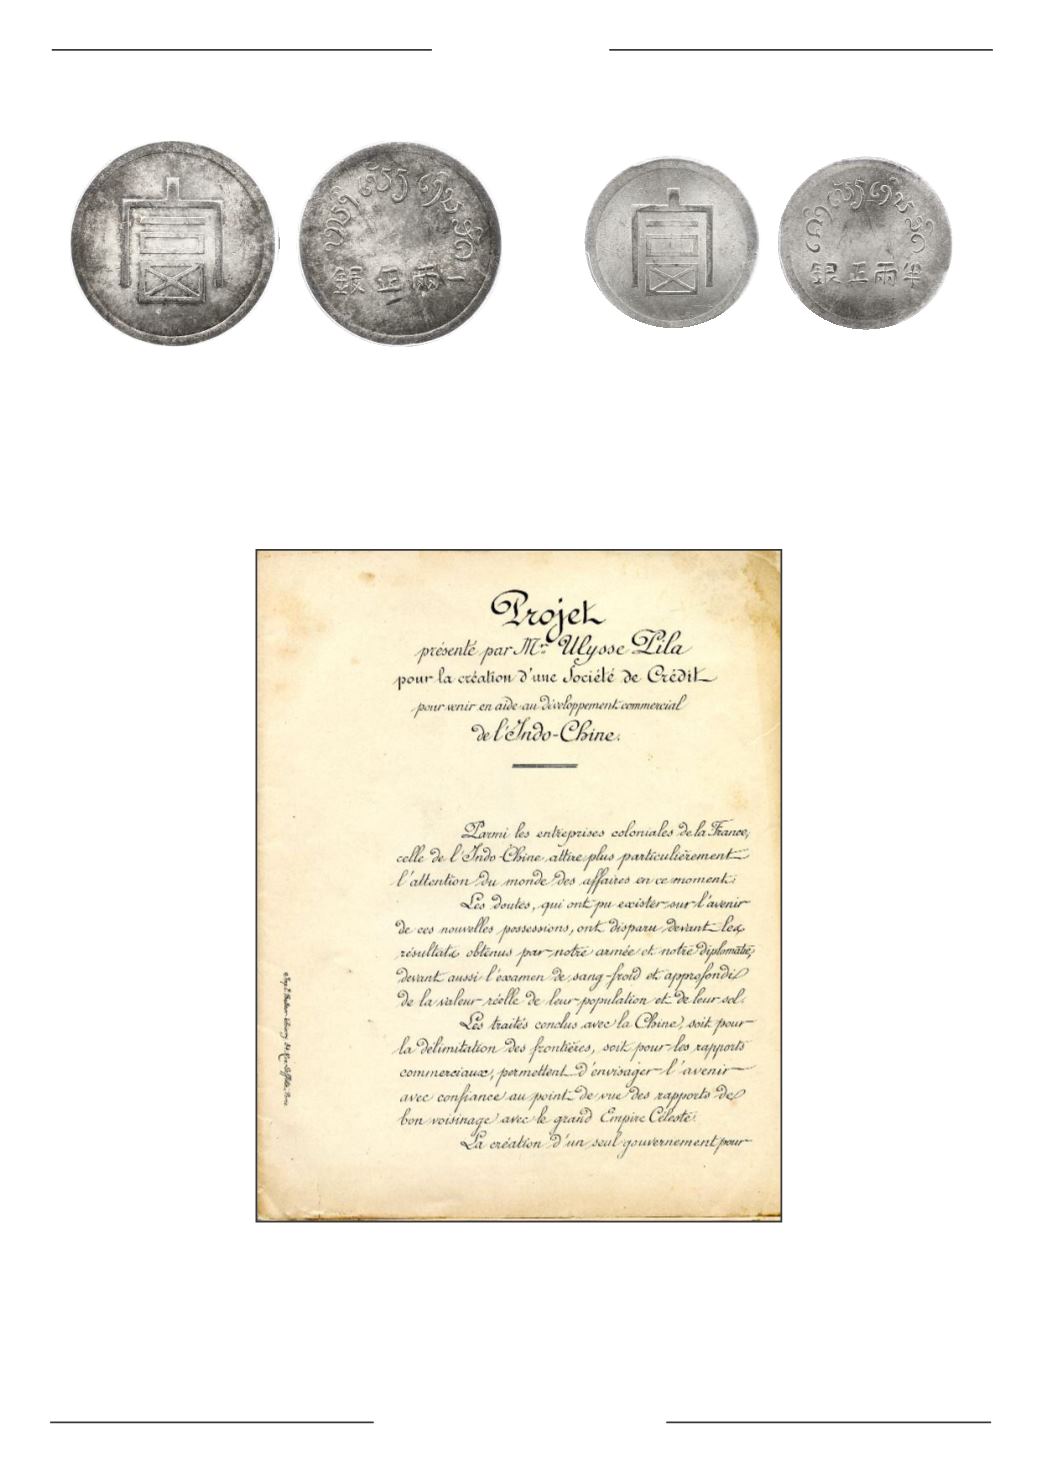 富
一兩正銀
富
半兩正銀
Projet
présenté par Mr. Ulysse Pila
pour la création d'une Société de Crédit
pour venir en aide au développement commercial
de l'Indo-Chine.
Parmi les entreprises coloniales de la France,
celle de l'Indo-Chine attire plus particulièrement
l'attention du monde des affaires en ce moment.
Les doutes, qui ont pu exister sur l'avenir
de ces nouvelles possessions, ont disparu devant les
résultats obtenus par notre armée et notre diplomatie,
devant aussi l'examen de sang-froid et approfondi
de la valeur réelle de leur population et de leur sol.
Les traités conclus avec la Chine, soit pour
la délimitation des frontières, soit pour les rapports
commerciaux, permettent d'envisager l'avenir
avec confiance au point de vue des rapports de
bon voisinage avec le grand Empire Céleste.
La création d'un seul gouvernement pour